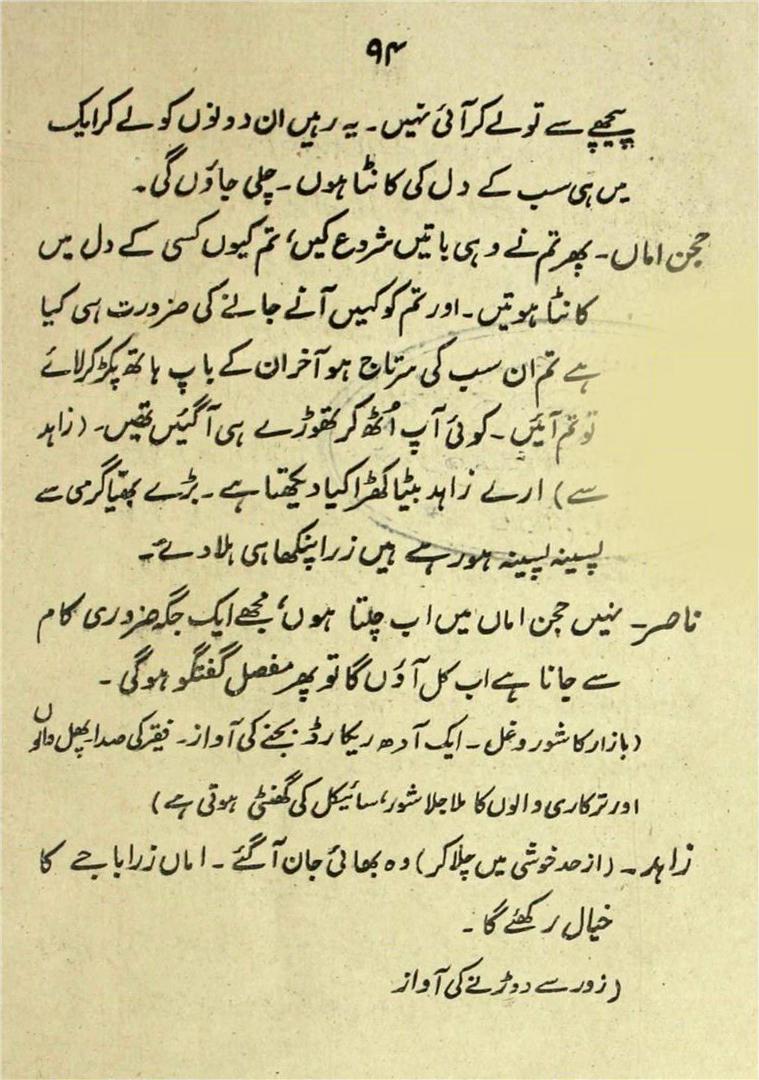 ۹۴
پیچھے سے تو لے کر آئی نہیں۔ یہ رہیں ان دونوں کو لے کر ایک
میں ہی سب کے دل کی کانٹا ہوں۔ چلی جاؤں گی۔
حجن اماں۔ پھر تم نے وہی باتیں شروع کیں، تم کیوں کسی کے دل میں
کانٹا ہوتیں۔ اور تم کو کہیں آنے جانے کی ضرورت ہی کیا
ہے تم ان سب کی سرتاج ہو آخر ان کے باپ ہاتھ پکڑ کر لائے
تو تم آئیں۔ کوئی آپ اُٹھ کر تھوڑے ہی آ گئیں تھیں۔ (زاہد
سے) ارے زاہد بیٹا کھڑا کیا دیکھتا ہے۔ بڑے بھیّا گرمی سے
پسینہ پسینہ ہو رہے ہیں زرا پنکھا ہی ہلا دے۔
ناصر۔ نہیں حجن اماں میں اب چلتا ہوں، مجھے ایک جگہ ضروری کام
سے جانا ہے اب کل آؤں گا تو پھر مفصل گفتگو ہوگی۔
(بازار کا شور و غل۔ ایک آدھ ریکارڈ بجنے کی آواز۔ فقیر کی صدا پھل والوں
اور ترکاری والوں کا ملا جلا شور، سائیکل کی گھنٹی ہوتی ہے)
زاہد۔ (از حد خوشی میں چلا کر) وہ بھائی جان آ گئے۔ اماں زرا باجے کا
خیال رکھئے گا۔
(زور سے دوڑنے کی آواز